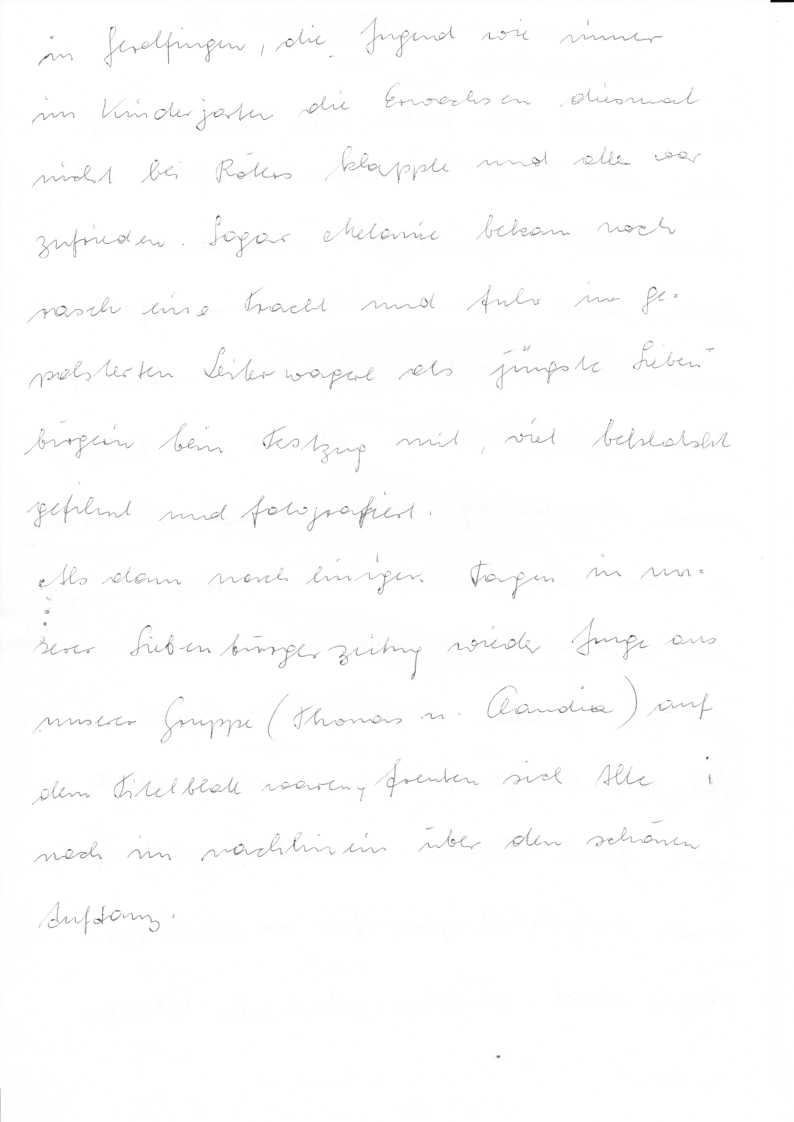 in Gerolfingen, die Jugend wie immer
im Kindergarten die Erwachsen diesmal
nicht bei Rökers klappte und alle war
zufrieden. Sogar Melanie bekam noch
rasch eine Tracht und fuhr im ge-
polsterten Leiterwagerl als jüngste Sieben-
bürgerin beim Festzug mit, viel beklatscht
gefilmt und fotografiert.
Als dann nach einigen Tagen in un-
serer Siebenbürger zeitung wieder Junge aus
unserer Gruppe (Thomas u. Claudia) auf
dem Titelblatt waren, freuten sich Alle
noch im nachhinein über den schönen
Auftanz.